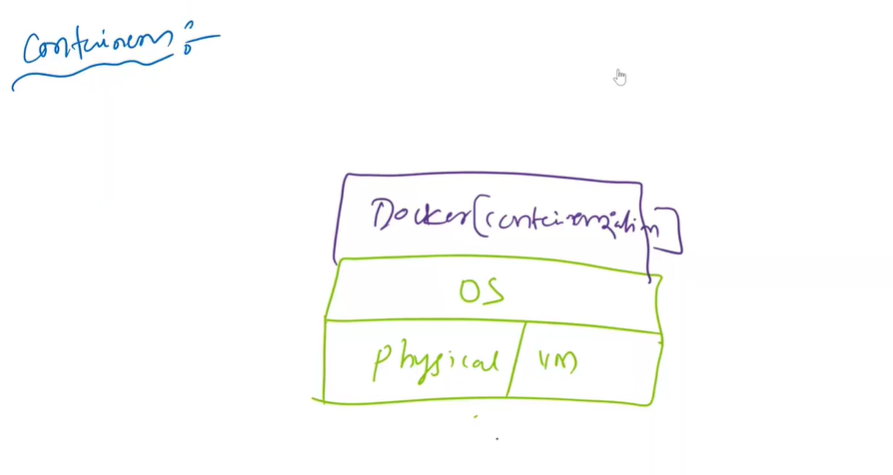 Containers:-
Docker[containerization]
OS
Physical / VM